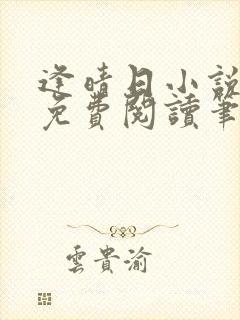 逢晴日小說
免費閱讀筆
雲貴渝